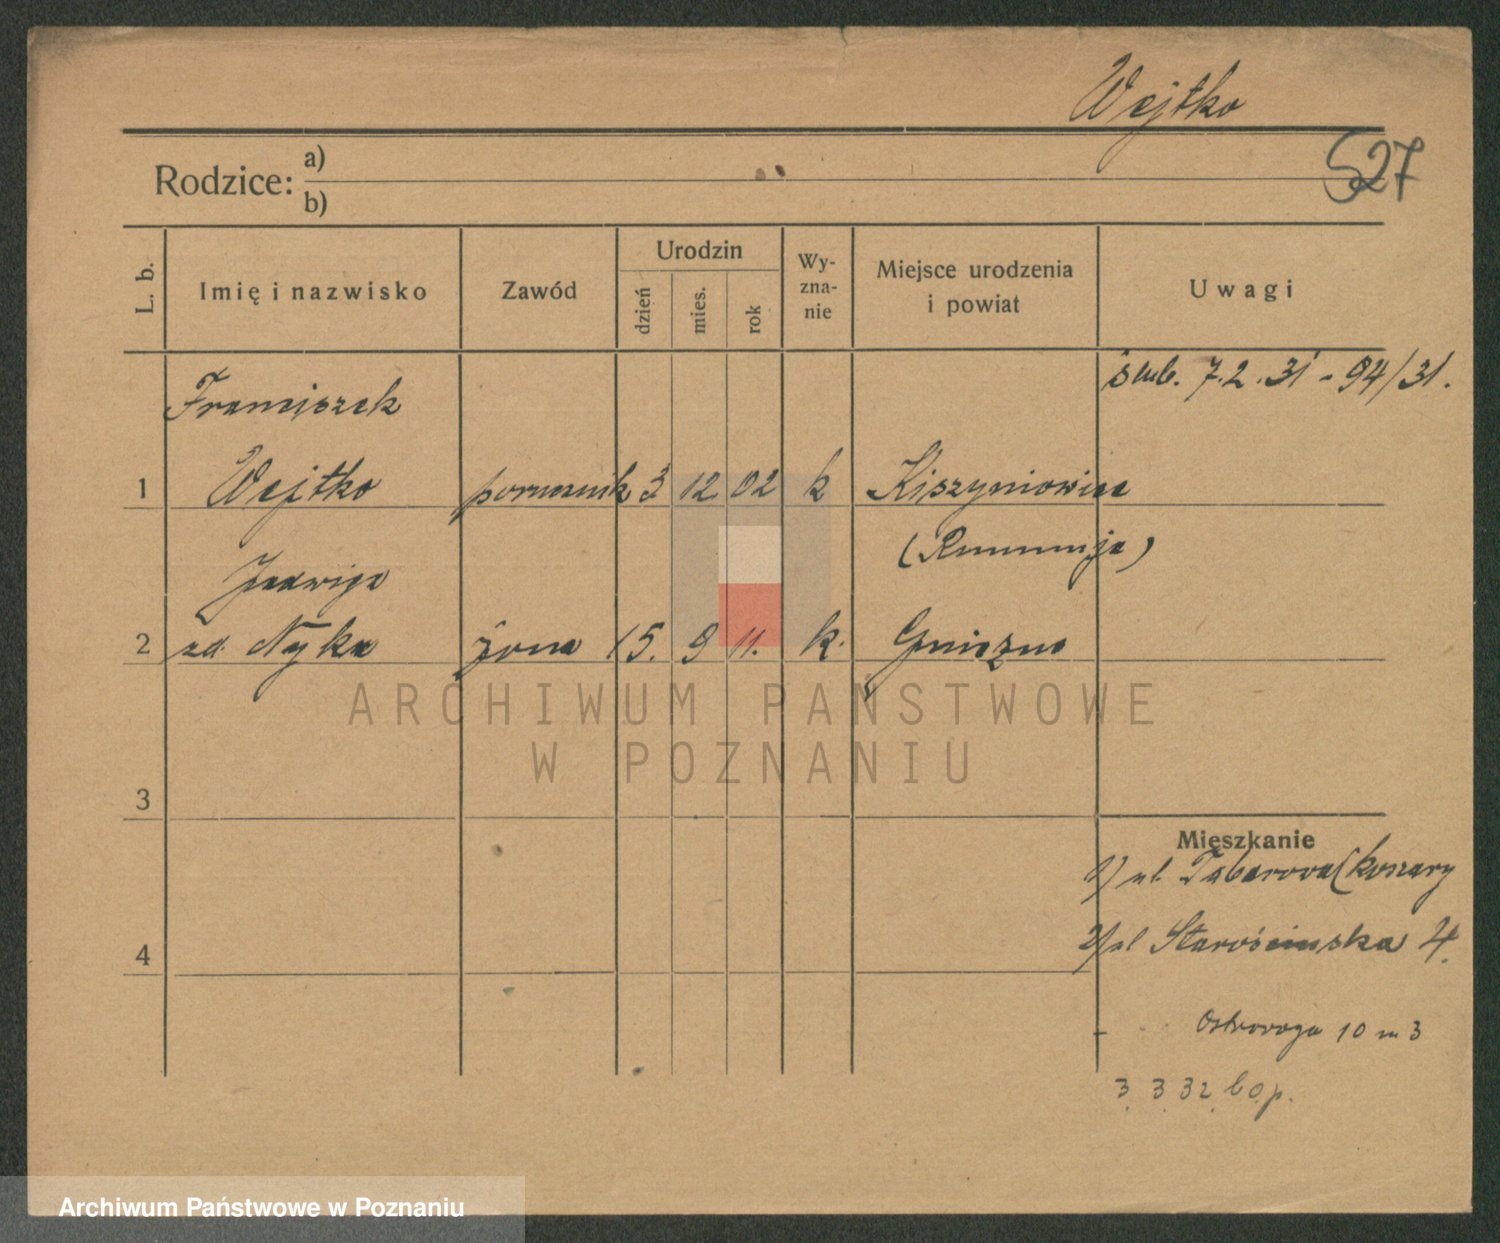 Wejtko
527
Rodzice: a)
b)
L. b.
Imię i nazwisko
Zawód
Urodzin
dzień
mies.
rok
Wy-
zna-
nie
Miejsce urodzenia
i powiat
Uwagi
ślub. 7.2.31 - 94/31.
Franciszek
1 Wejtko porucznik 3 12 02 k Kiszyniowie
(Rumunja)
Jadwiga
2 zd. Nyka żona 15. 9 11. k. Gniezno
ARCHIWUM PAŃSTWOWE
W POZNANIU
3
Mieszkanie
1) ul. Taborowa (koszary
4
2) ul Starościnska 4.
Ostroroga 10 m 3
3. 3 32. b.o.p.
Archiwum Państwowe w Poznaniu